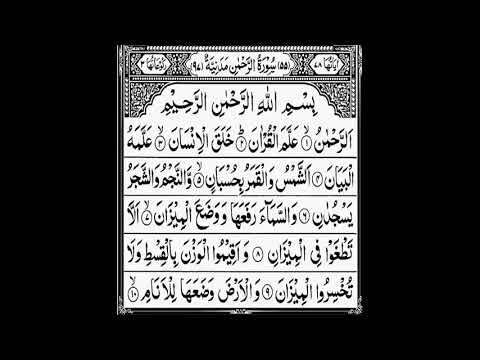 اٰيَاتُهَا ٧٨ (٥٥) سُوْرَةُ الرَّحْمٰنِ مَدَنِيَّةٌ (٩٧) رُكُوْعَاتُهَا ٣
بِسْمِ اللّٰهِ الرَّحْمٰنِ الرَّحِيْمِ
اَلرَّحْمٰنُ ۙ۱ عَلَّمَ الْقُرْاٰنَ ؕ۲ خَلَقَ الْاِنْسَانَ ۙ۳ عَلَّمَهُ
الْبَيَانَ ۴ اَلشَّمْسُ وَالْقَمَرُ بِحُسْبَانٍ ۪۵ وَّالنَّجْمُ وَالشَّجَرُ
يَسْجُدٰنِ ۶ وَالسَّمَآءَ رَفَعَهَا وَوَضَعَ الْمِيْزَانَ ۙ۷ اَلَّا
تَطْغَوْا فِى الْمِيْزَانِ ۸ وَاَقِيْمُوا الْوَزْنَ بِالْقِسْطِ وَلَا
تُخْسِرُوا الْمِيْزَانَ ۹ وَالْاَرْضَ وَضَعَهَا لِلْاَنَامِ ۙ۱۰